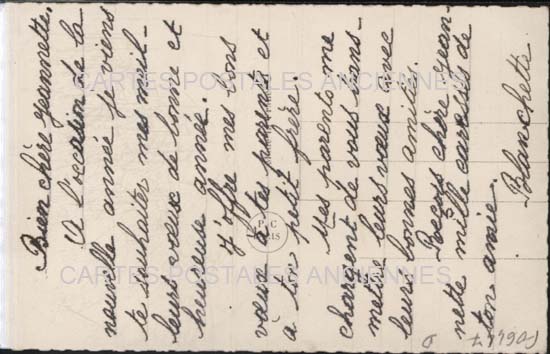 Bien chère Jeannette.
A l'occasion de la
nouvelle année je viens
te souhaiter mes meil-
leurs vœux de bonne et
heureuse année.
J'offre mes bons
vœux à tes parents et
à ton petit frère.
Mes parents me
chargent de vous trans-
mettre leurs vœux avec
leurs bonnes amitiés.
Reçois chère Jean-
nette mille caresses de
ton amie.
Blanchette
CARTES POSTALES ANCIENNES
CARTES POSTALES ANCIENNES